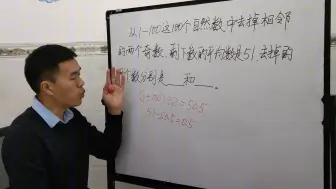 从1-100这100个自然数中去掉相邻
的两个奇数,剩下数的平均数是51,去掉的
两个数分别是___和___。
(1+100)÷2=50.5
51-50.5=0.5